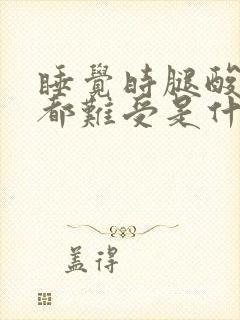 睡覺時腿酸
都難受是什
盖得